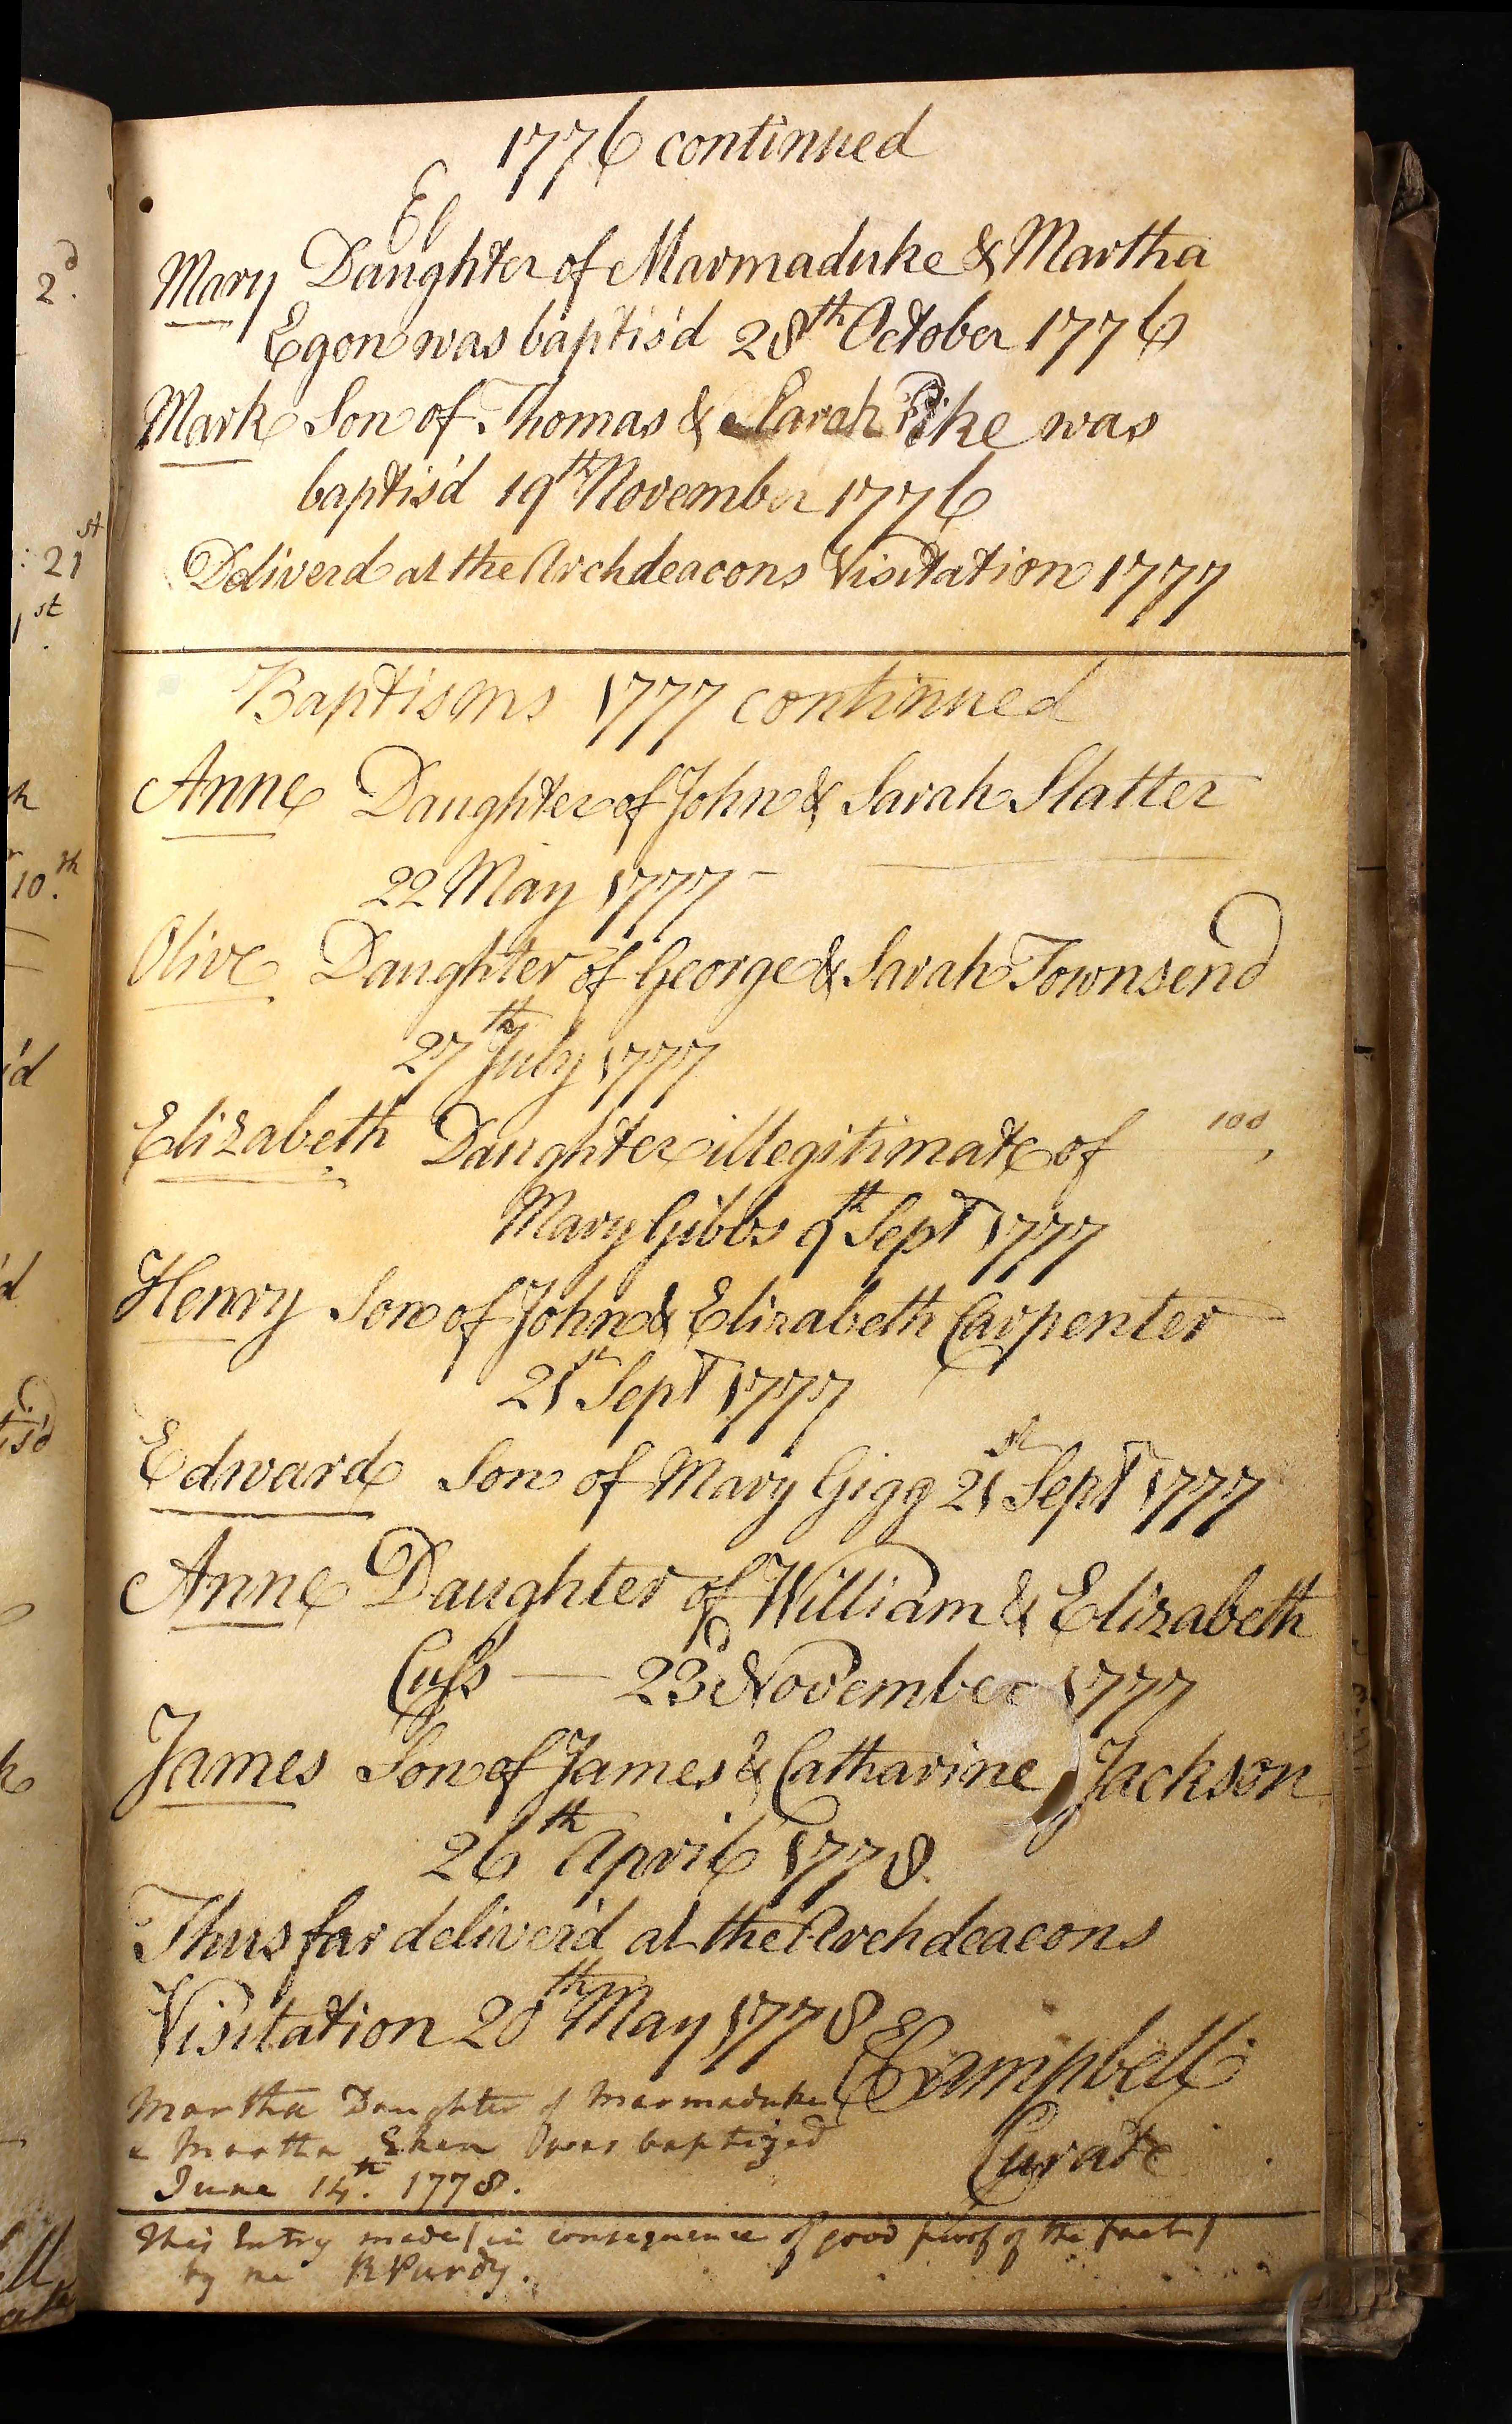 1776 continued
El
Mary Daughter of Marmaduke & Martha
Egon was baptis'd 28th October 1776
Mark Son of Thomas & Sarah Pike was
baptis'd 19th November 1776
Deliverd at the Archdeacons Visitation 1777
Baptisms 1777 continued
Anne Daughter of John & Sarah Slatter
22 May 1777 -
Olive Daughter of George & Sarah Townsend
27th July 1777
Elizabeth Daughter illegitimate of
100
Mary Gibbs 9th Sept 1777
Henry Son of John & Elizabeth Carpenter
21st Sept 1777
Edward Son of Mary Gigg 21st Sept 1777
Anne Daughter of William & Elizabeth
Cuss — 23d November 1777
James Son of James & Catharine Jackson
26th April 1778.
Thus far deliver'd at the Archdeacons
Visitation 20th May 1778
Campbell
Curate
Martha Daughter of Marmaduke
& Martha Eken was baptized
June 14th. 1778.
This Entry made (in consequence of good proof of the fact)
by me R Purdy.
2d.
: 21st
1st
10.th